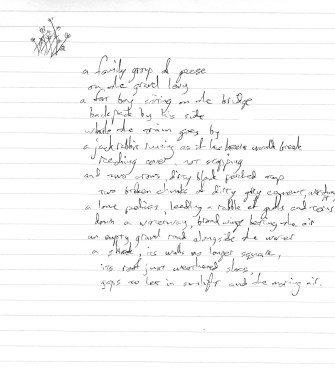 a family group of geese
on the gravel
a boy sitting on the bridge
backpack by his side
while the train goes by
a jack rabbit running as if its would break
reaching cover, not stopping
and two crows, dirty black
two broken of dirty grey cement,
a lone pelican, leading a rabble of gulls and terns
down a waterway, broad wings beating the air
an empty gravel road alongside the water
a shed, its walls no longer square,
its roof just weathered slats,
gaps to let in sunlight and the moving air.